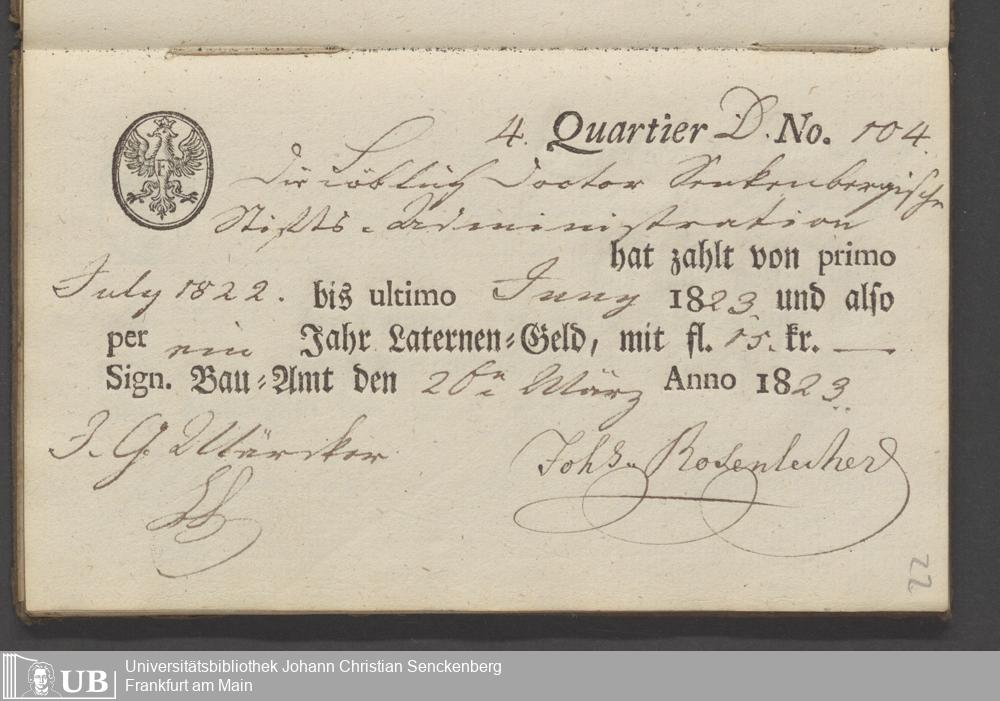 4. Quartier D. No. 104.
Die Löblich Doctor Senkenbergische
Stifts-Administration
hat zahlt von primo
July 1822. bis ultimo Juny 1823 und also
per ein Jahr Laternen-Geld, mit fl. 15. kr. —
Sign. Bau-Amt den März Anno 1823
J. G. Märcker
Johs. Rosenlecher
22
UB
Universitätsbibliothek Johann Christian Senckenberg
Frankfurt am Main